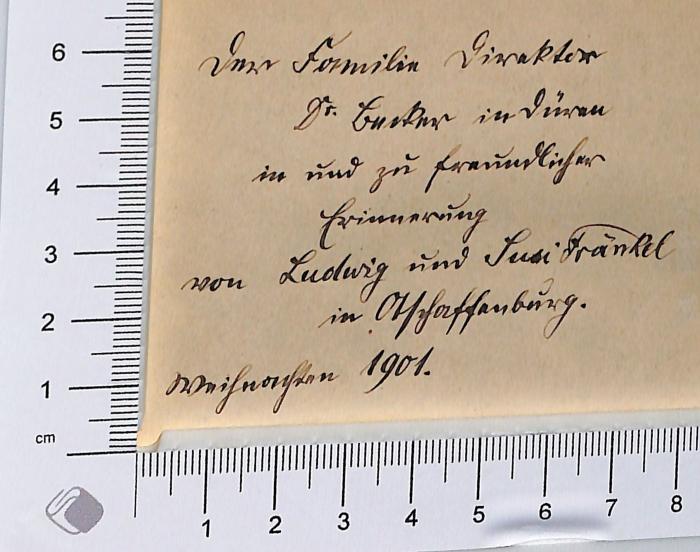 Der Familie Direktor
Dr. Becker in Düren
in und zu freundlicher
Erinnerung
von Ludwig und Susi Fränkel
in Aschaffenburg.
Weihnachten 1901.
6
5
4
3
2
1
cm
1 2 3 4 5 6 7 8